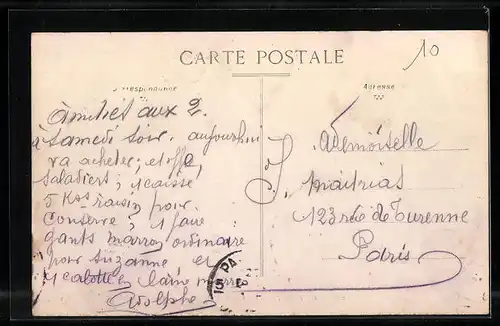 CARTE POSTALE
10
Correspondance
Adresse
Amitiés aux 2.
à samedi soir. aujourdhui
va acheter;
saladiers; 1 caisse
5 Kgs raisin pour
conserve; 1 paire
gants marron ordinaire
pour suzanne et
1 calotte laine
Adolphe
Mademoiselle
J. Maitrias
123 rue de Turenne
Paris
15 PA